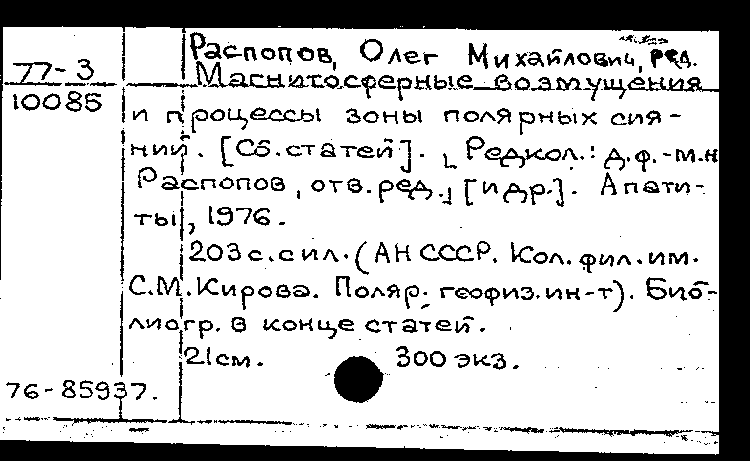 Распопов, Олег Михайлович, ред.
77-3
Магнитосферные возмущения
10085
и процессы зоны полярных сия-
ний. [Сб. статей]. Редкол.: д.ф.-м.н
Распопов, отв. ред. [и др.]. Апати-
ты, 1976.
203 с. с ил. (АН СССР. Кол. фил. им.
С.М. Кирова. Поляр. геофиз. ин-т). Биб-
лиогр. в конце статей.
21 см. 300 экз.
76-85937.